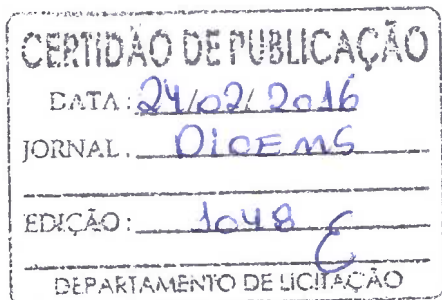 CERTIDÃO DE PUBLICAÇÃO
DATA: 24/02/2016
JORNAL: DIOEMS
EDIÇÃO: 1048
DEPARTAMENTO DE LICITAÇÃO